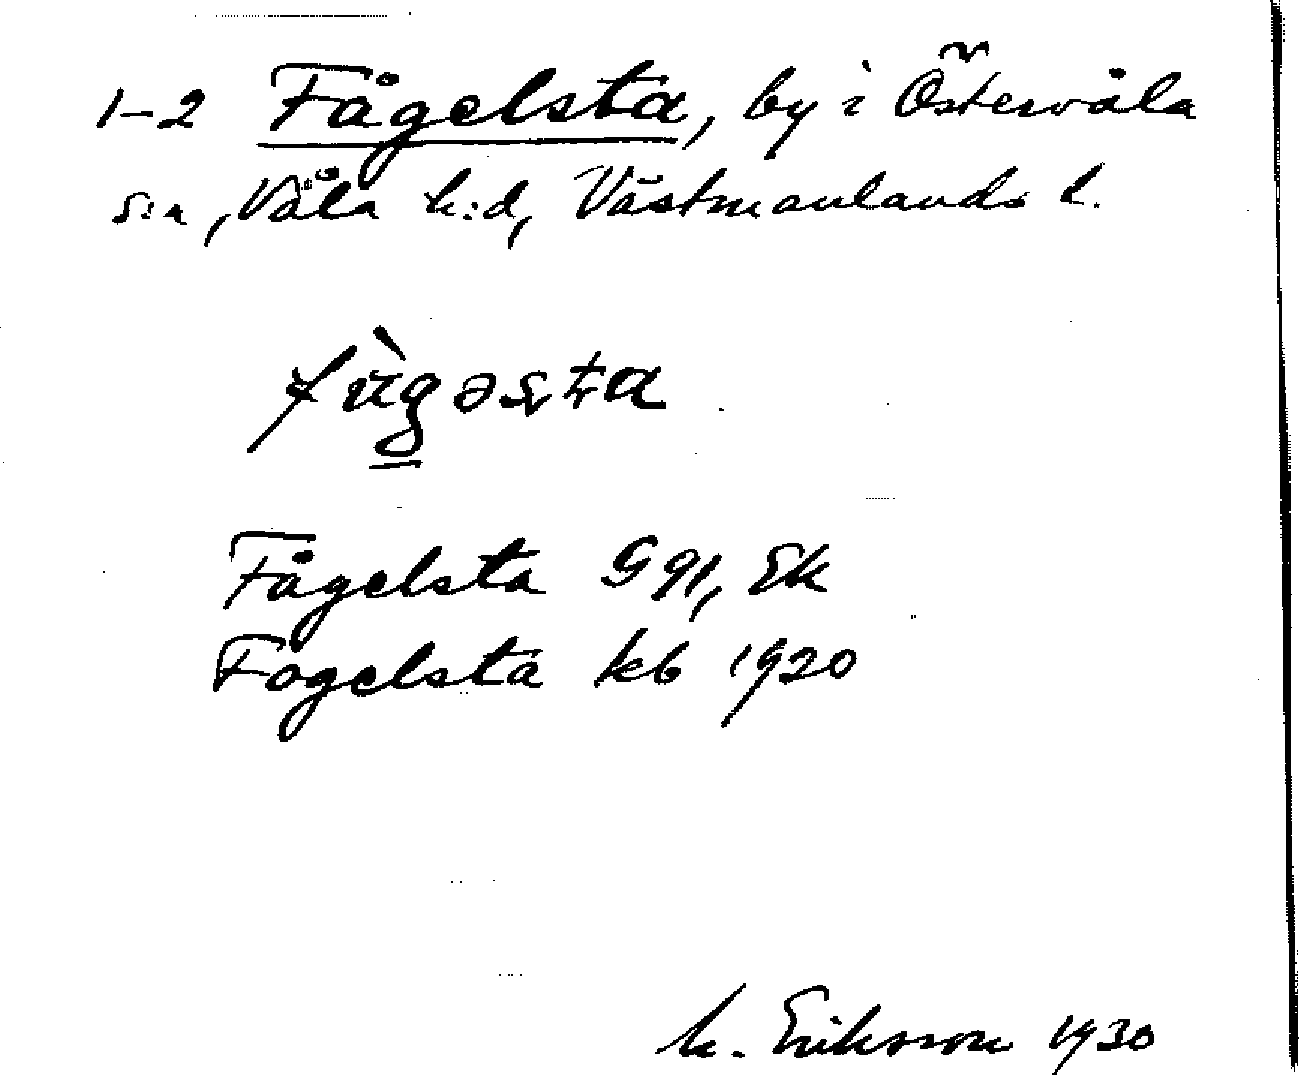 1-2 Fågelsta, by i Östervåla
sn, Våla h:d, Västmanlands l.
Fågelsta G 91, Ek
Fogelsta kb 1920
M. Eriksson 1930